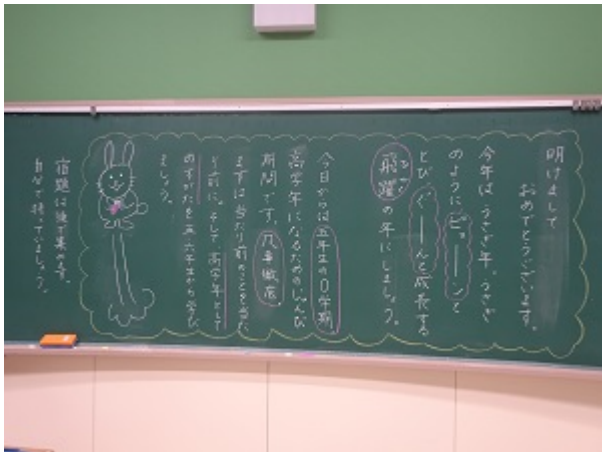 明けまして
おめでとうございます。
今年は、うさぎ年。うさぎ
のように「ピョーン」と
とび、ぐーんと成長する
飛躍の年にしましょう。
ひやく
今日からは五年生の0学期
高学年になるためのじゅんび
期間です。凡事徹底。
まずは当たり前のことを当た
り前に。そして、高学年として
のすがたを五、六年生から学び
ましょう。
宿題は後で集めます。
自分で持っていましょう。